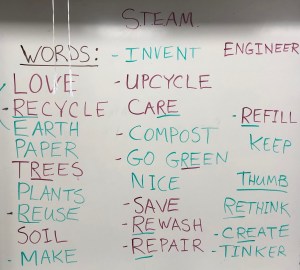 STEAM
WORDS:
LOVE
- RECYCLE
EARTH
PAPER
TREES
PLANTS
- REUSE
SOIL
- MAKE
- INVENT
- UPCYCLE
CARE
- COMPOST
- GO GREEN
NICE
- SAVE
- REWASH
- REPAIR
ENGINEER
- REFILL
KEEP
THUMB
RETHINK
- CREATE
- TINKER